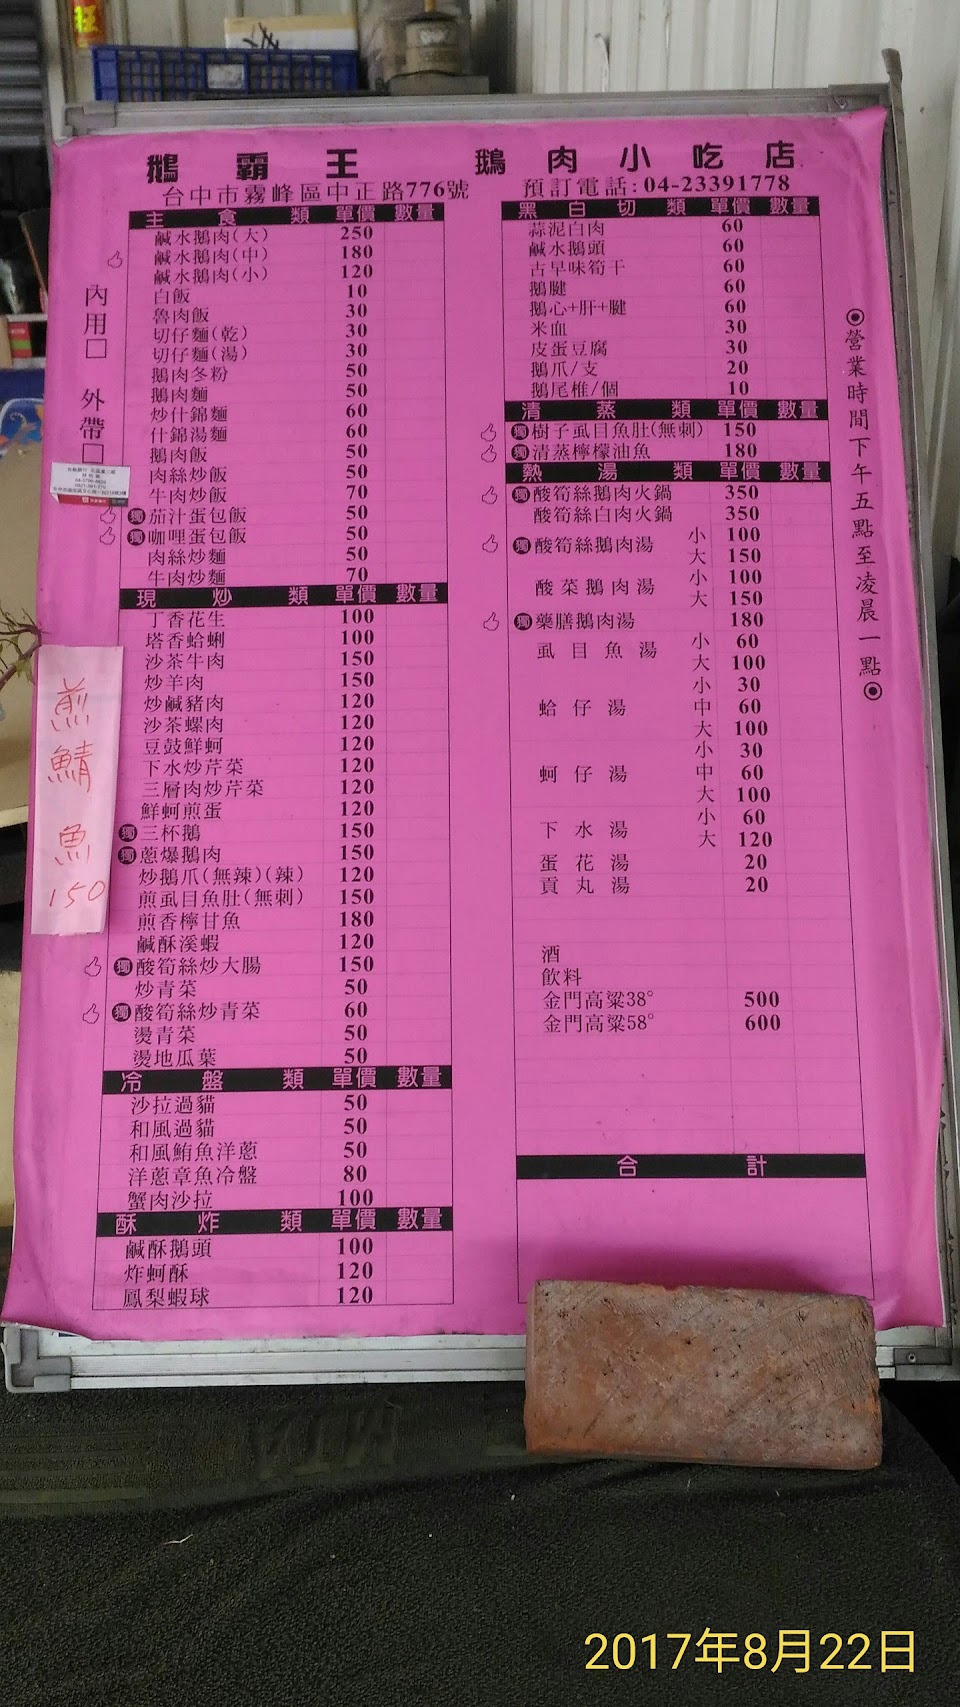 旺
鵝霸王 鵝肉小吃店
台中市霧峰區中正路776號 預訂電話:04-23391778
內用□ 外帶□
主食類 單價 數量
鹹水鵝肉(大) 250
鹹水鵝肉(中) 180
鹹水鵝肉(小) 120
白飯 10
魯肉飯 30
切仔麵(乾) 30
切仔麵(湯) 30
鵝肉冬粉 50
鵝肉麵 50
炒什錦麵 60
什錦湯麵 60
鵝肉飯 50
肉絲炒飯 50
牛肉炒飯 70
獨茄汁蛋包飯 50
獨咖哩蛋包飯 50
肉絲炒麵 50
牛肉炒麵 70
現炒類 單價 數量
丁香花生 100
塔香蛤蜊 100
沙茶牛肉 150
炒羊肉 150
炒鹹豬肉 120
沙茶螺肉 120
豆鼓鮮蚵 120
下水炒芹菜 120
三層肉炒芹菜 120
鮮蚵煎蛋 120
獨三杯鵝 150
獨蔥爆鵝肉 150
炒鵝爪(無辣)(辣) 120
煎虱目魚肚(無刺) 150
煎香檸甘魚 180
鹹酥溪蝦 120
獨酸筍絲炒大腸 150
炒青菜 50
獨酸筍絲炒青菜 60
燙青菜 50
燙地瓜葉 50
冷盤類 單價 數量
沙拉過貓 50
和風過貓 50
和風鮪魚洋蔥 50
洋蔥章魚冷盤 80
蟹肉沙拉 100
酥炸類 單價 數量
鹹酥鵝頭 100
炸蚵酥 120
鳳梨蝦球 120
黑白切類 單價 數量
蒜泥白肉 60
鹹水鵝頭 60
古早味筍干 60
鵝腱 60
鵝心+肝+腱 60
米血 30
皮蛋豆腐 30
鵝爪/支 20
鵝尾椎/個 10
清蒸類 單價 數量
獨樹子虱目魚肚(無刺) 150
獨清蒸檸檬油魚 180
熱湯類 單價 數量
獨酸筍絲鵝肉火鍋 350
酸筍絲白肉火鍋 350
獨酸筍絲鵝肉湯 小 100
大 150
酸菜鵝肉湯 小 100
大 150
獨藥膳鵝肉湯 180
虱目魚湯 小 60
大 100
蛤仔湯 小 30
中 60
大 100
蚵仔湯 小 30
中 60
大 100
下水湯 小 60
大 120
蛋花湯 20
貢丸湯 20
酒
飲料
金門高粱38° 500
金門高粱58° 600
合計
◉營業時間下午五點至凌晨一點◉
煎鯖魚150
2017年8月22日